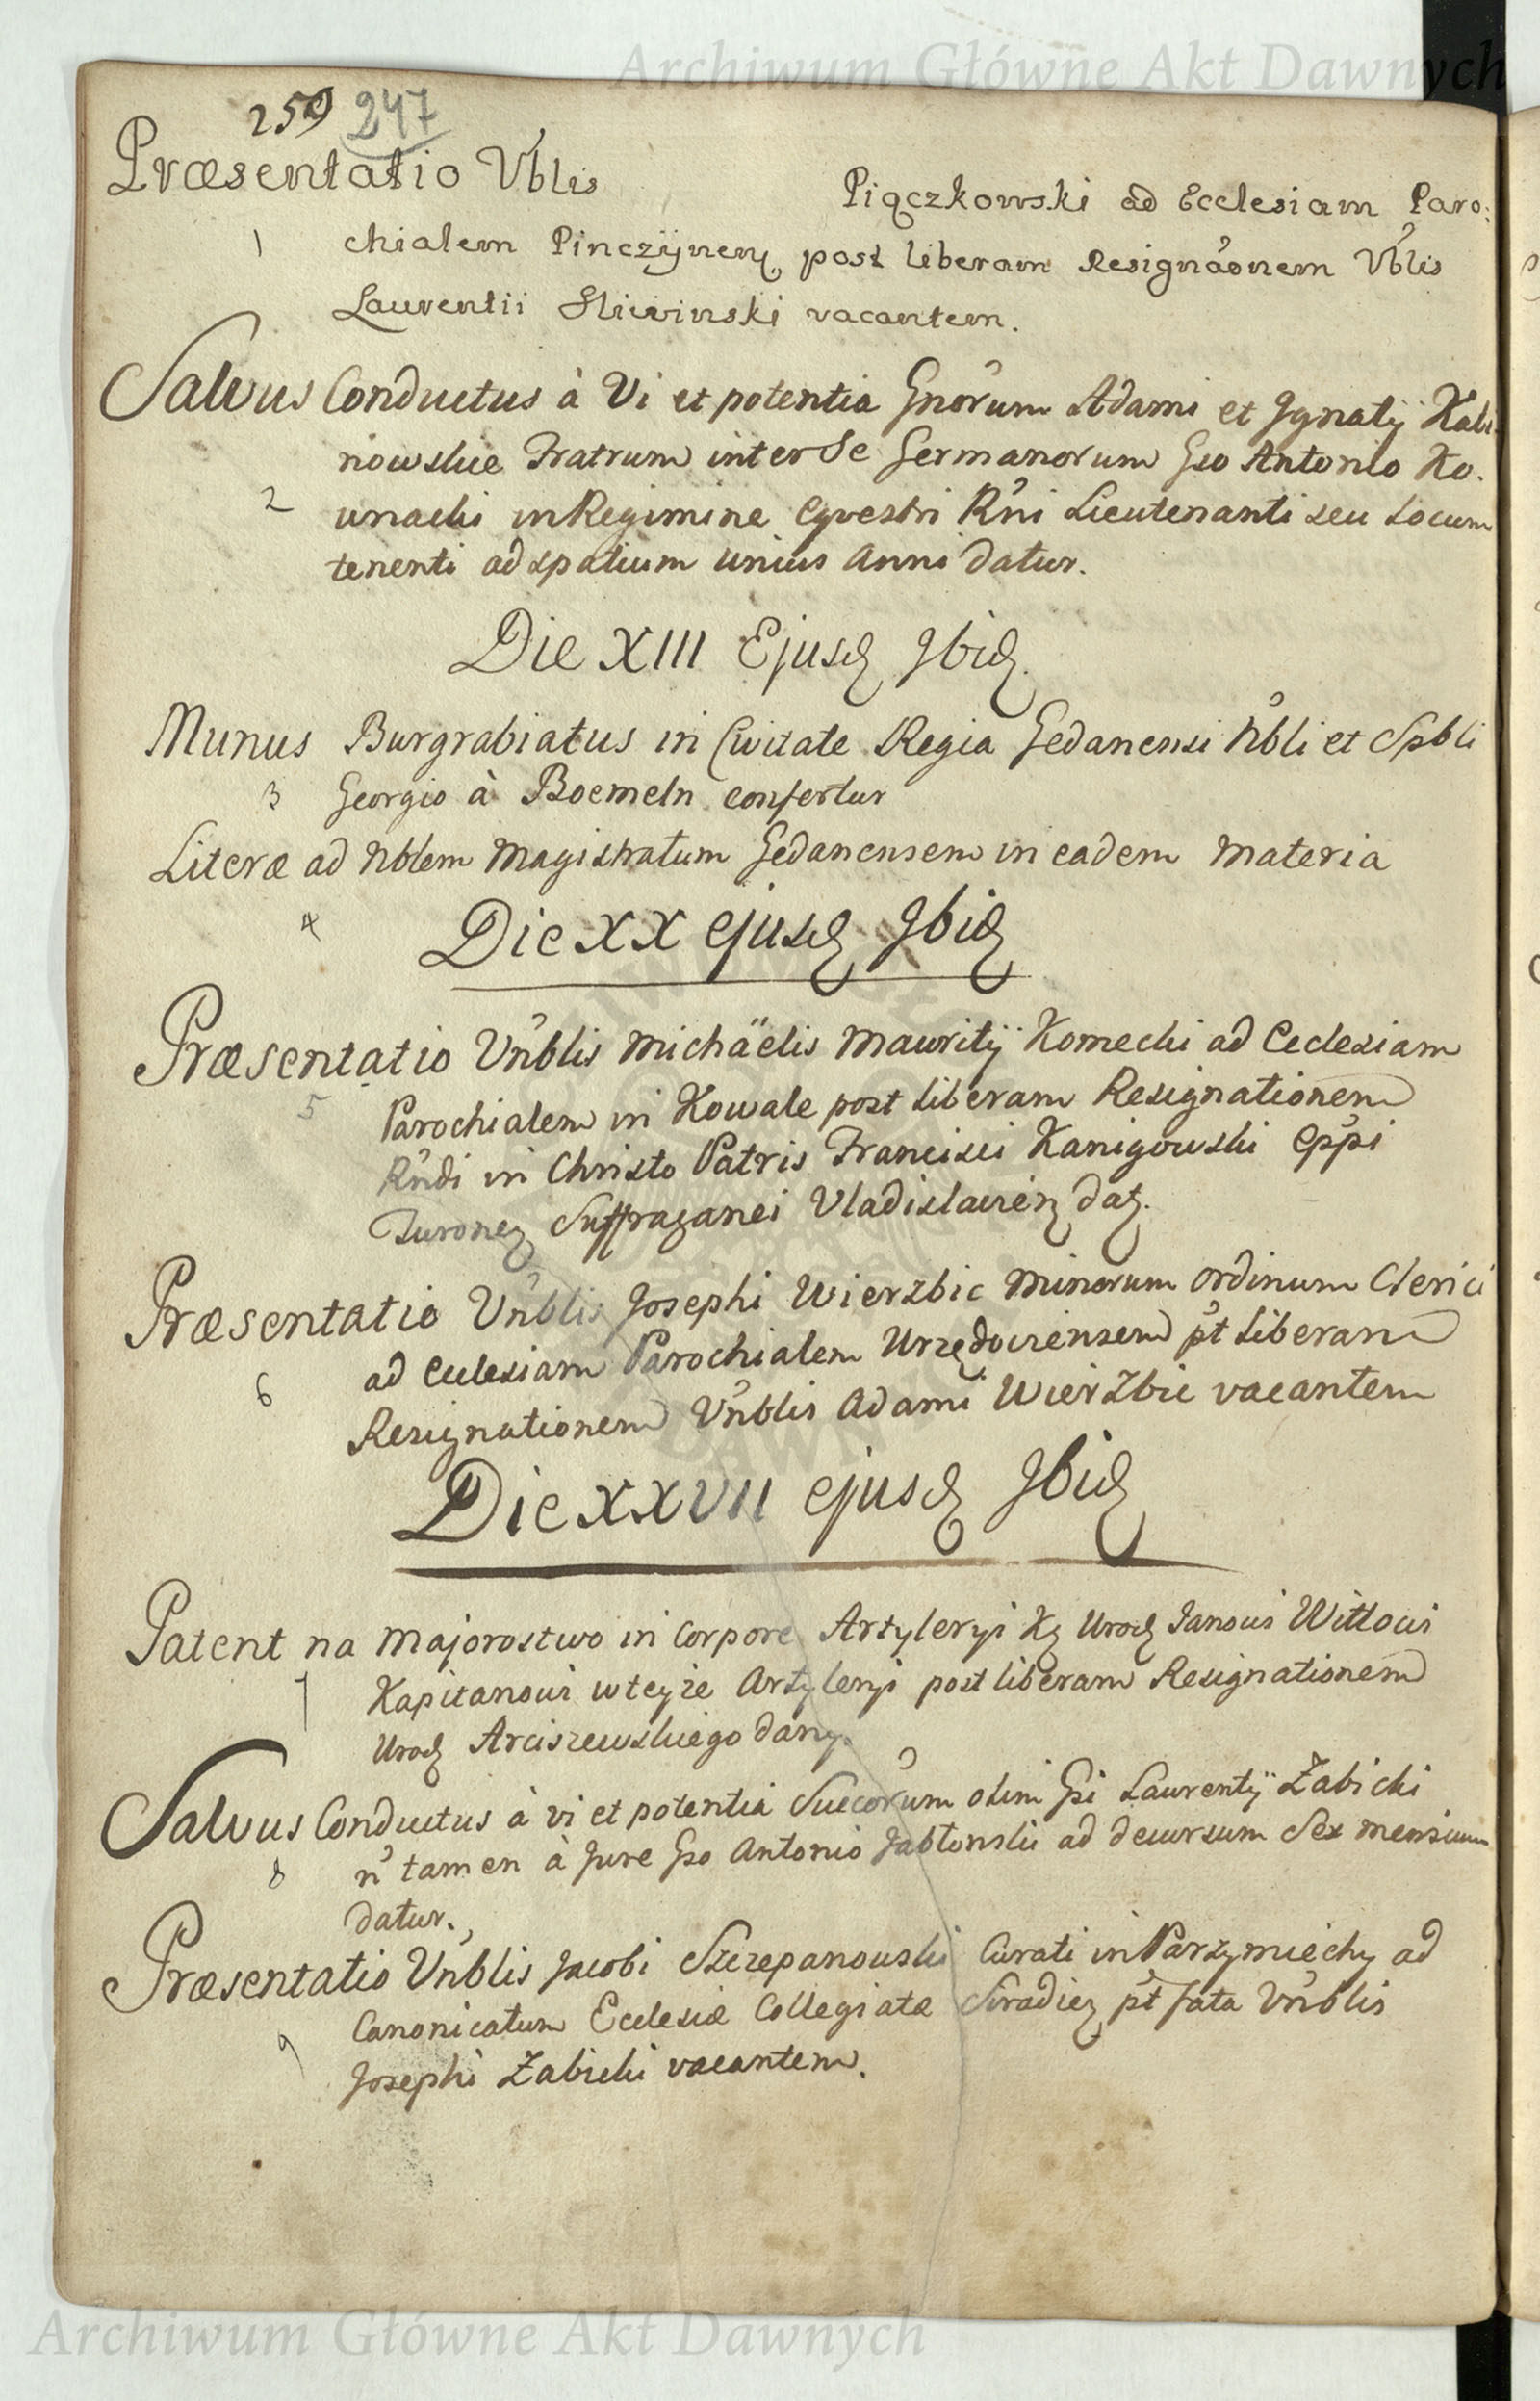 Archiwum Główne Akt Dawnych
259 247
Præsentatio Vblis Piączkowski ad Ecclesiam Paro:
1 chialem Pinczÿnen post liberam Resignaonem Vblis
Laurentii Sliwinski vacantem.
Salvus Conductus à Vi et potentia Gnorum Adami et Ignatÿ Kali
nowskie Fratrum inter Se Germanorum Gso Antonio Ko.
2 wnacki in Regimine Eqvestri Rni Lieutenanti seu Locum
tenenti ad spatium unius Anni datur.
Die XIII Ejusd Ibid.
Munus Burgrabiatus in Civitate Regia Gedanensi Nbli et Spbli
3 Georgio à Boemeln confertur
Literæ ad Nblem Magistratum Gedanensem in eadem Materia
4
Die XX ejusd Ibid
Præsentatio Vnblis Michäelis Mauritÿ Komecki ad Ecclesiam
5 Parochialem in Kowale post liberam Resignationem
Rndi in Christo Patris Francisci Kanigowski Eppi
Suffraganei Vladislavien dat.
Præsentatio Vnblis Josephi Wierzbic Minorum Ordinum Clerici
ad Ecclesiam Parochialem Urzędoviensem pt Liberam
6 Resignationem Vnblis Adami Wierzbic vacantem
Die XXVII ejusd Ibid
Patent na Majorostwo in Corpore Artyleryi Kz Urod Janowi Wittowi
7 Kapitanowi w teyże Artyleryi post liberam Resignationem
Urod Arciszewskiego dany.
Salvus Conductus à vi et potentia Succorum olim Gsi Laurentÿ Zabicki
8 n tamen à Jure Gso Antonio Jabłonski ad decursum Sex mensium
datur.
Præsentatio Vnblis Jacobi Szczepanowski Curati in Parzymiechy ad
Canonicatum Ecclesiæ Collegiatæ Siradien pt fata Vnblis
9 Josephi Zabicki vacantem.
Archiwum Główne Akt Dawnych